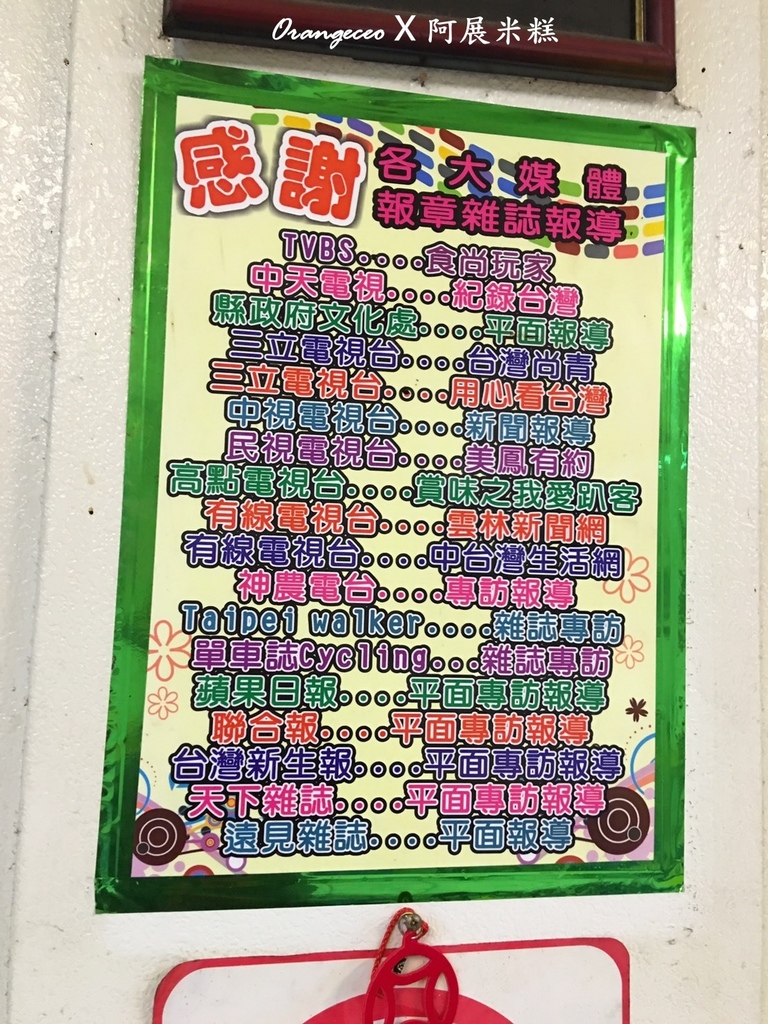 Orangeceo X 阿展米糕
感謝 各大媒體
報章雜誌報導
TVBS....食尚玩家
中天電視....紀錄台灣
縣政府文化處....平面報導
三立電視台....台灣尚青
三立電視台....用心看台灣
中視電視台....新聞報導
民視電視台....美鳳有約
高點電視台....賞味之我愛趴客
有線電視台....雲林新聞網
有線電視台....中台灣生活網
神農電台....專訪報導
Taipei walker....雜誌專訪
單車誌Cycling...雜誌專訪
蘋果日報....平面專訪報導
聯合報....平面專訪報導
台灣新生報....平面專訪報導
天下雜誌....平面專訪報導
遠見雜誌....平面報導